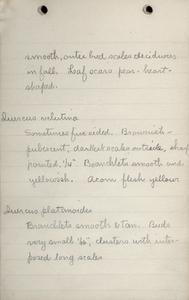 smooth, outer bud scales deciduous
in fall. Leaf scars pear-heart-
shaped.
Quercus velutina
Sometimes five sided. Brownish-
pubescent, darkest scales outside, sharp
pointed, ¼". Branchlets smooth and
yellowish. Acorn flesh yellow
Quercus platanoides
Branchlets smooth & tan. Buds
very small, clusters with inter-
posed long scales